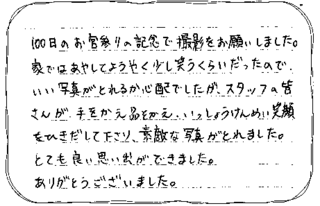 100日のお宮参りの記念で撮影をお願いしました。
家ではあやしてようやく少し笑うくらいだったので、
いい写真がとれるか心配でしたが、スタッフの皆
さんが、手をかえ品をかえ、いっしょうけんめい笑顔
をひきだして下さり、素敵な写真がとれました。
とても良い思い出ができました。
ありがとうございました。